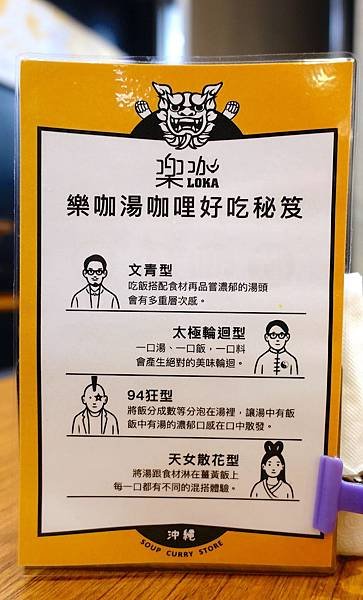 樂咖
LOKA
樂咖湯咖哩好吃秘笈
文青型
吃飯搭配食材再品嘗濃郁的湯頭
會有多重層次感。
太極輪迴型
一口湯、一口飯，一口料
會產生絕對的美味輪迴。
94狂型
將飯分成數等分泡在湯裡，讓湯中有飯
飯中有湯的濃郁口感在口中散發。
天女散花型
將湯跟食材淋在薑黃飯上
每一口都有不同的混搭體驗。
沖繩
SOUP CURRY STORE